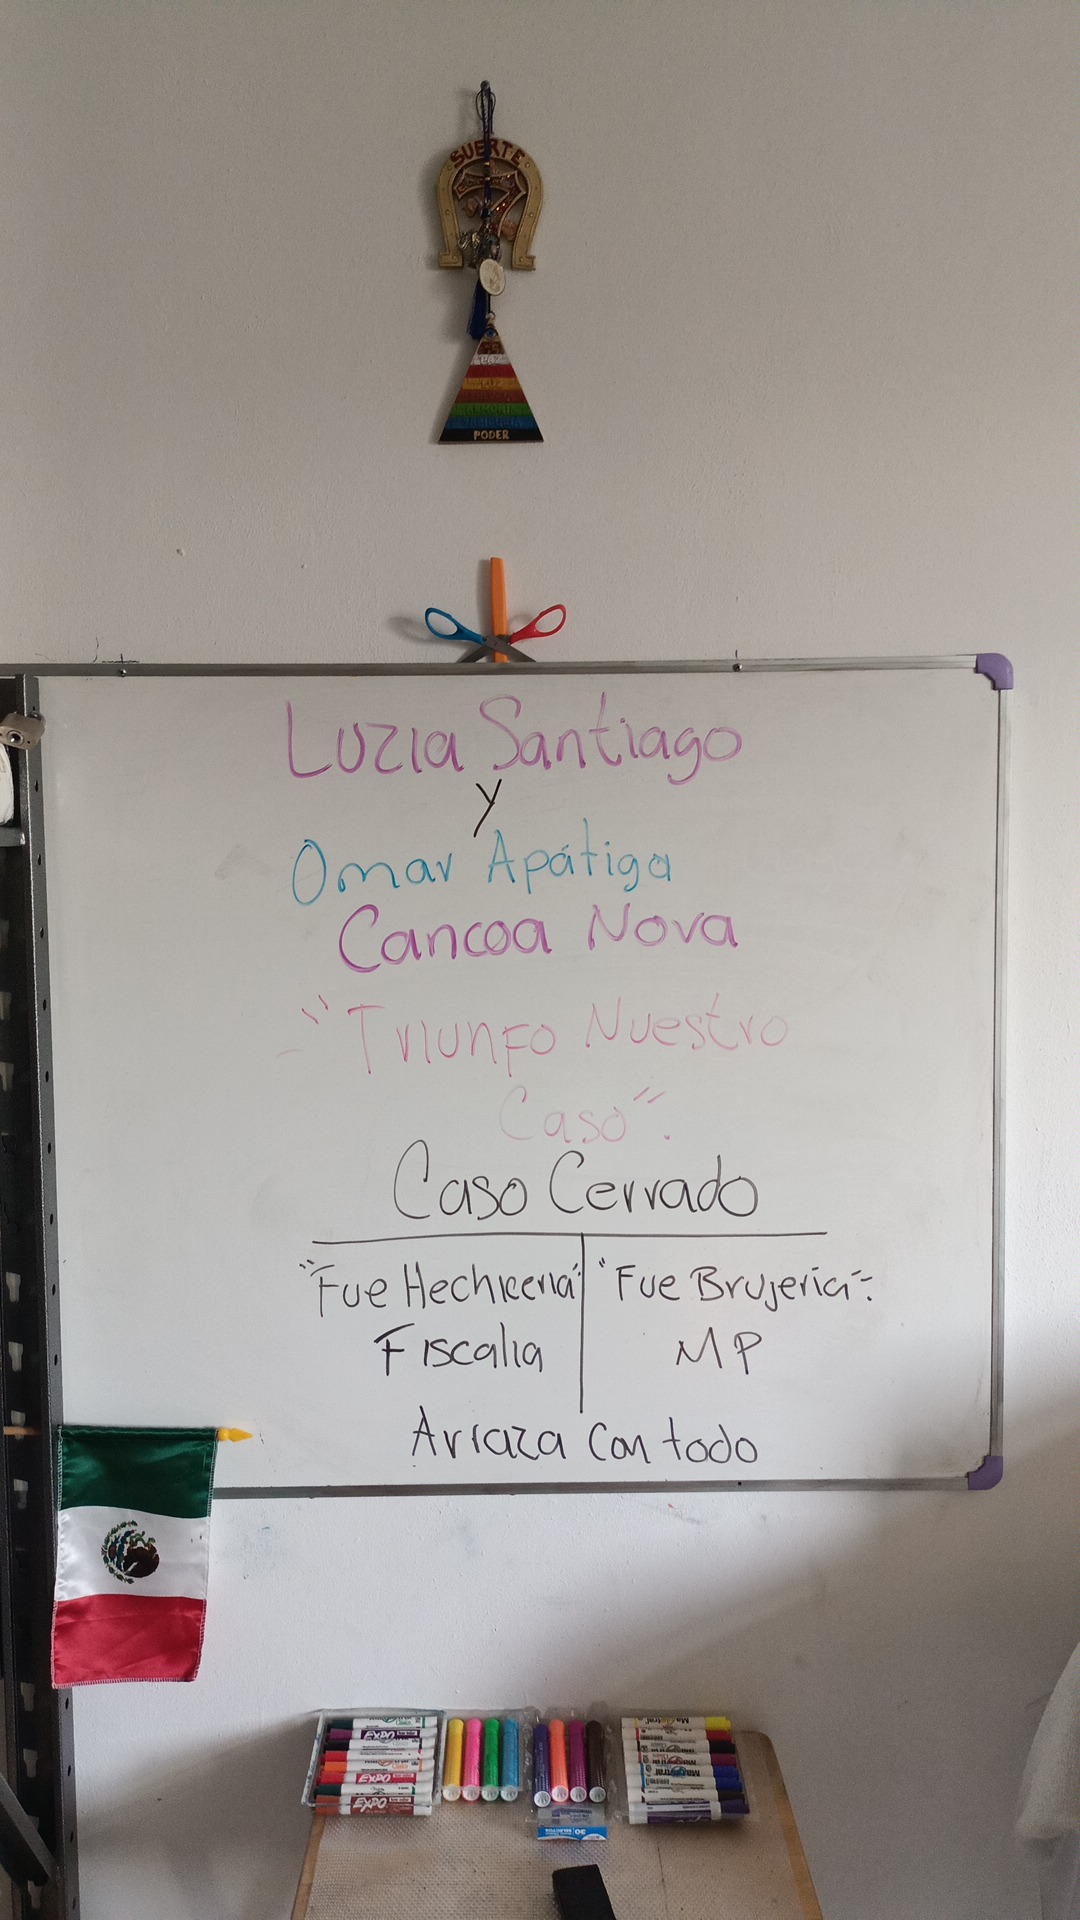 SUERTE
PODER
Luzia Santiago
y
Omar Apátiga
Cancoa Nova
"Triunfo Nuestro
Caso".
Caso Cerrado
"Fue Hechiceria" "Fue Brujeria".
Fiscalia MP
Arraza Con todo
EXPO
EXPO
EXPO